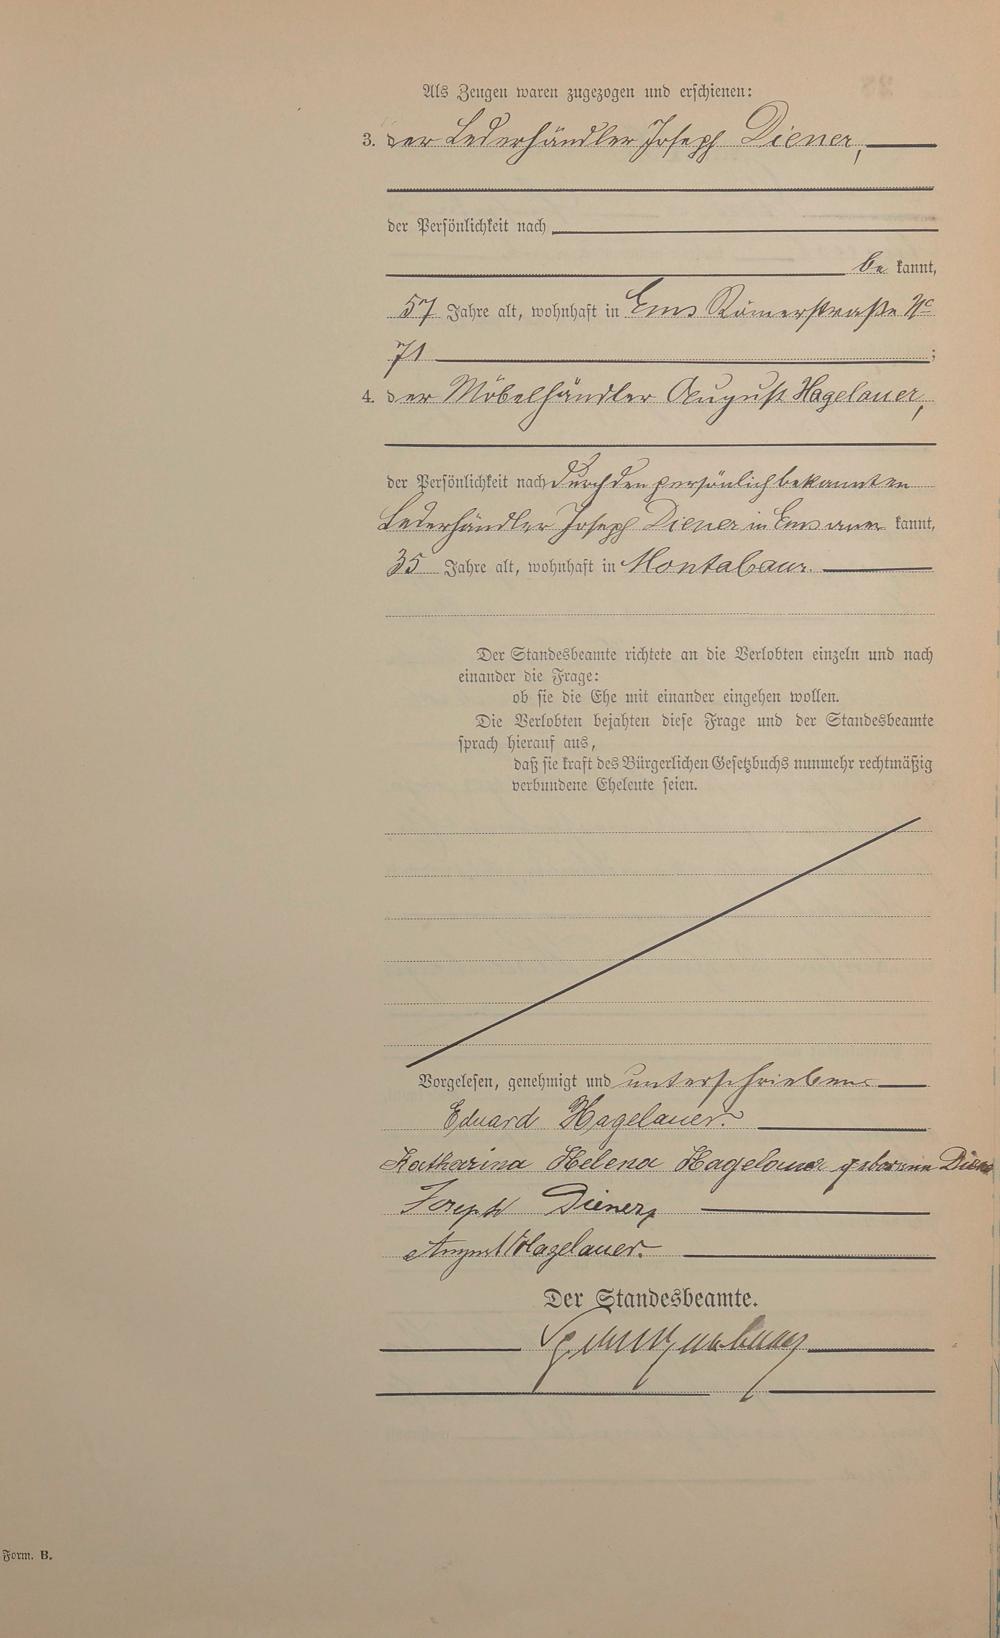 Als Zeugen waren zugezogen und erschienen:
3. der Lederhändler Joseph Diener,
der Persönlichkeit nach
be kannt,
57 Jahre alt, wohnhaft in Ems Römerstraße No
71 ;
4. der Möbelhändler August Hagelauer,
der Persönlichkeit nach durch den persönlich bekannten
Lederhändler Joseph Diener in Ems aner kannt,
35 Jahre alt, wohnhaft in Montabaur.
Der Standesbeamte richtete an die Verlobten einzeln und nach
einander die Frage:
ob sie die Ehe mit einander eingehen wollen.
Die Verlobten bejahten diese Frage und der Standesbeamte
sprach hierauf aus,
daß sie kraft des Bürgerlichen Gesetzbuchs nunmehr rechtmäßig
verbundene Eheleute seien.
Vorgelesen, genehmigt und unterschrieben
Eduard Hagelauer.
Katharina Helena Hagelauer geborene Diener
Joseph Diener,
August Hagelauer.
Der Standesbeamte.
Form. B.